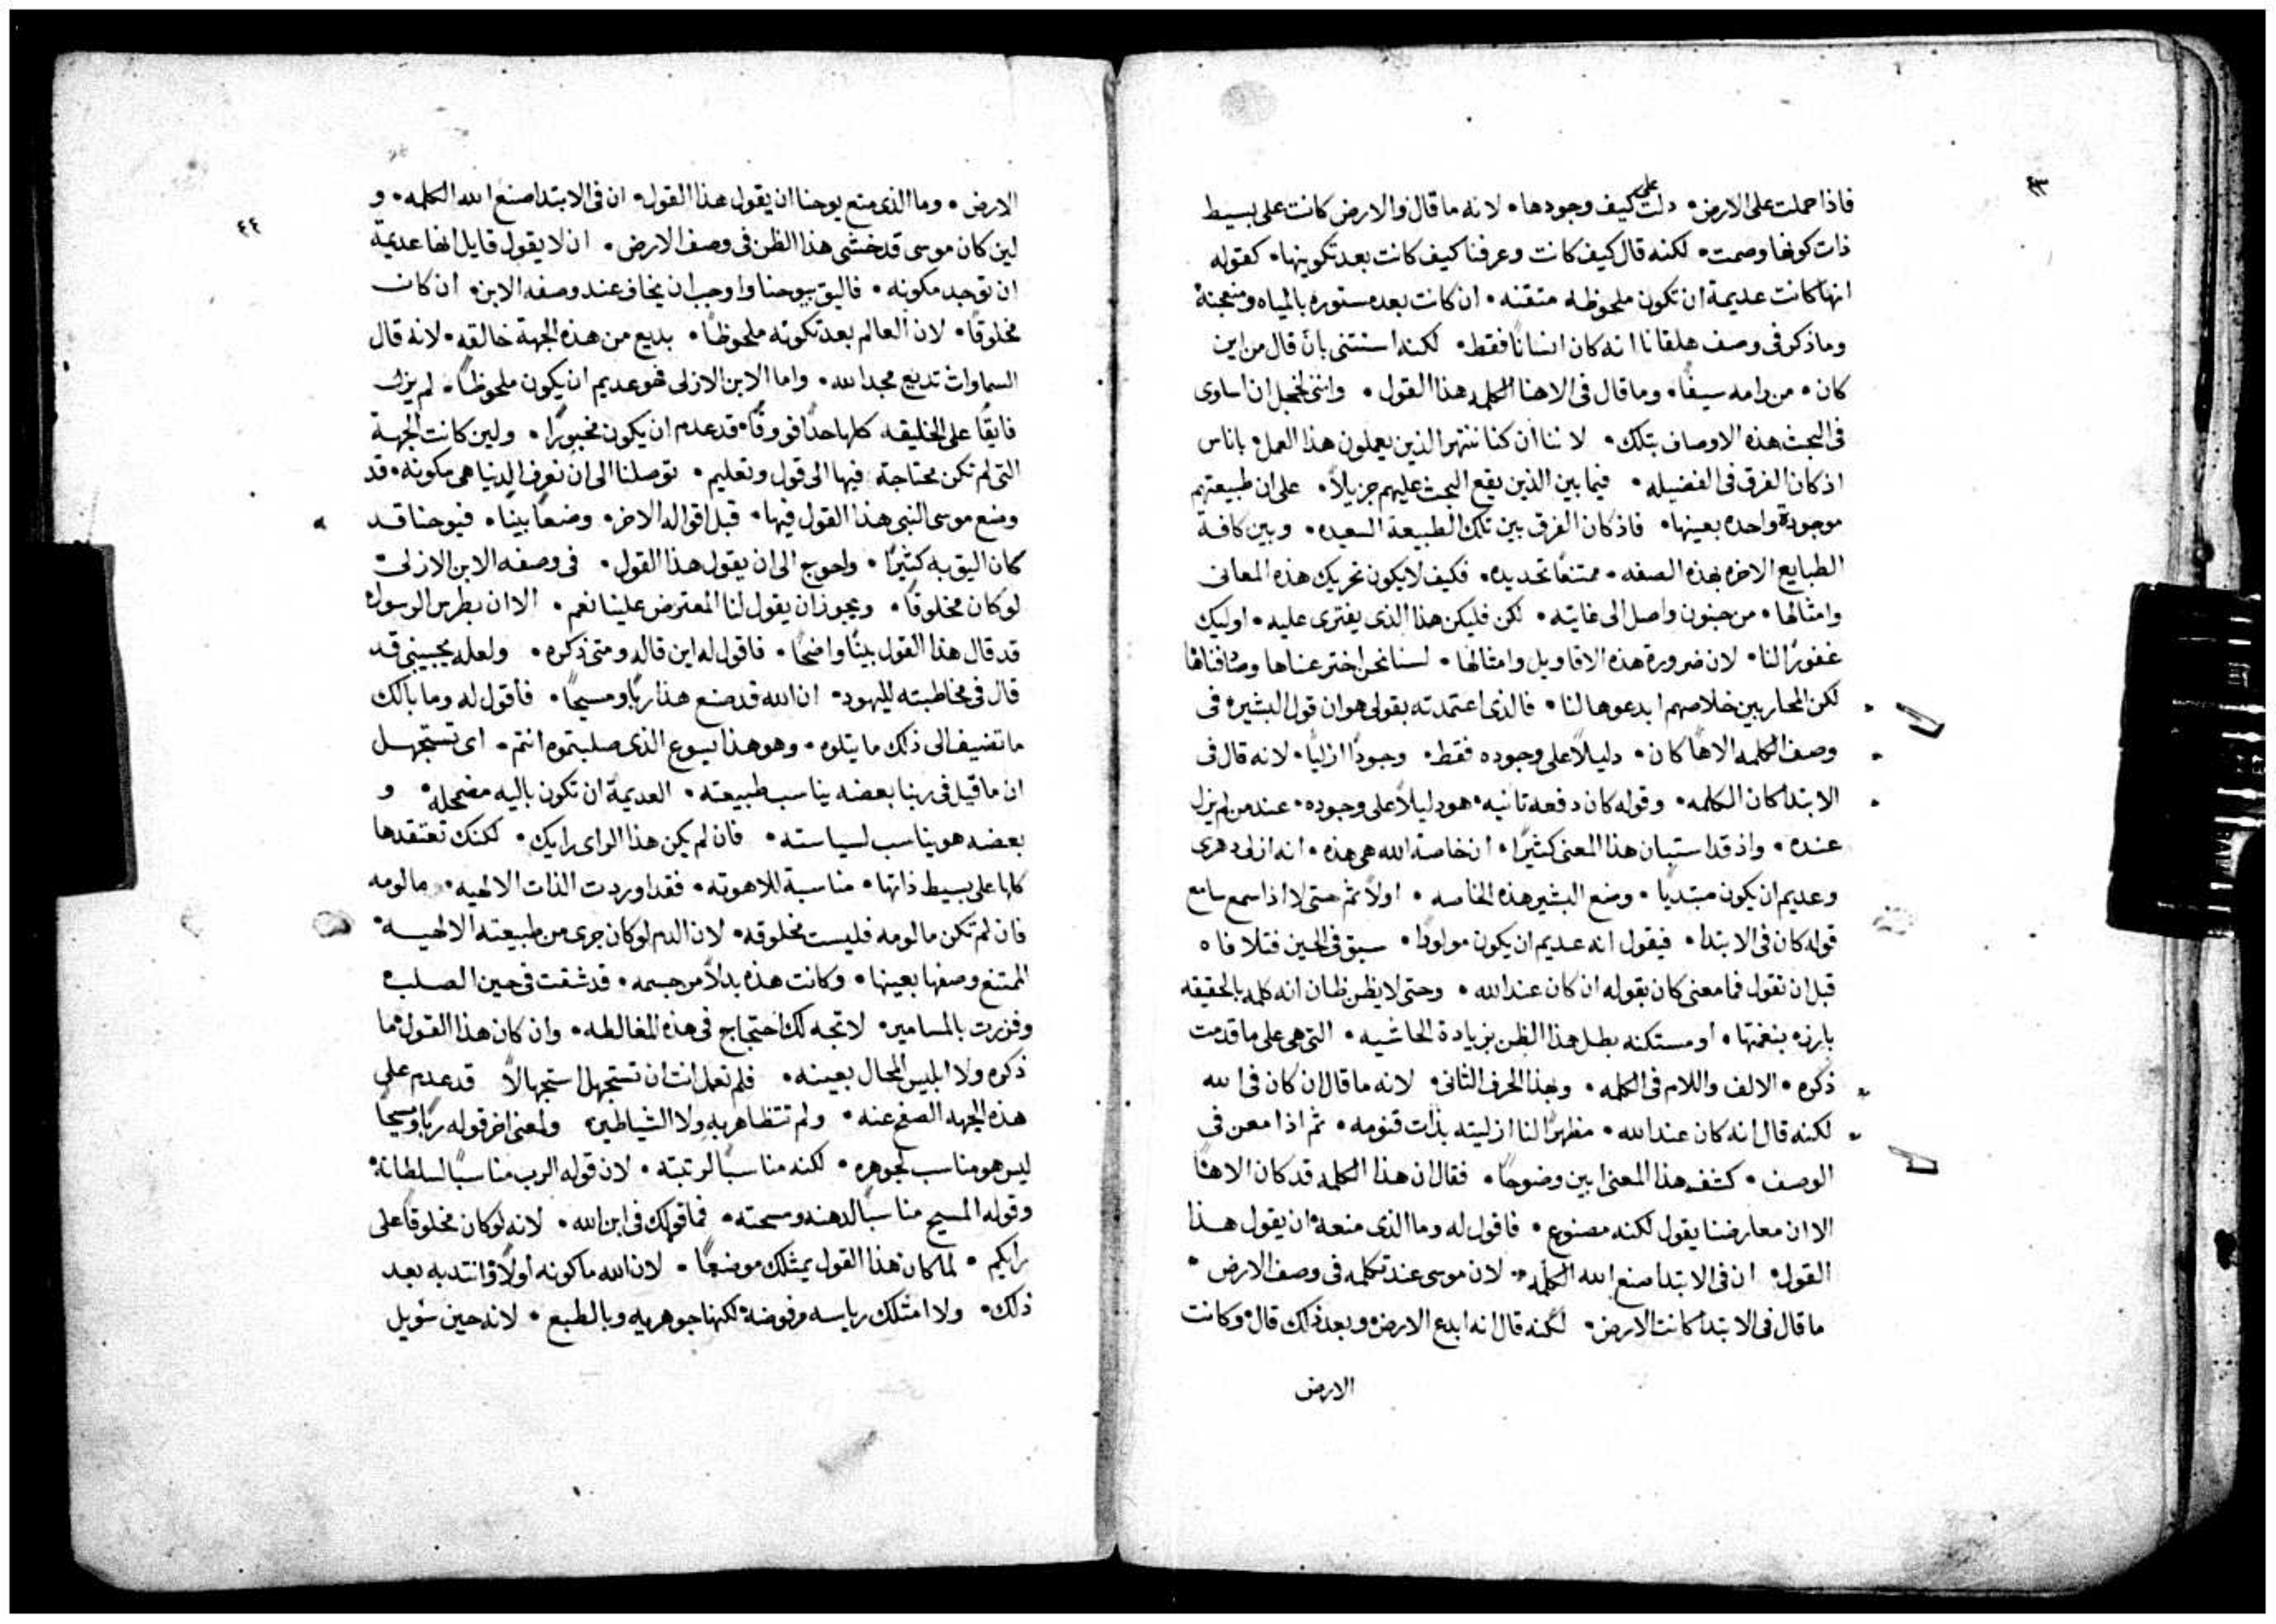 ٤٣
فاذا حملت على الارض • دلت على كيف وجودها • لانه ما قال والارض كانت على بسيط
ذات كونها وصمت • لكنه قال كيف كانت وعرفنا كيف كانت بعد تكوينها • كقوله
انها كانت عديمة ان تكون ملحوظه متقنه • ان كانت بعد مستوره بالمياه ومنعجنة
وما ذكر في وصف هلقانا انه كان انسانًا فقط • لكنه استثنى بان قال من اين
كان • من رامه سيفًا • وما قال في الاهنا الكلمه هذا القول • وانني لخجل ان اساوى
في البحث هذه الاوصاف بتلك • لاننا ان كنا ننتهر الذين يعملون هذا العمل باناس
اذ كان الفرق في الفضيله • فيما بين الذين يقع البحث عليهم جزيلاً • على ان طبيعتهم
موجودة واحده بعينها • فاذ كان الفرق بين تلك الطبيعة السعيده • وبين كافة
الطبايع الاخره بهذه الصفه • ممتنعًا تحديده • فكيف لا يكون تحريك هذه المعانى
وامثالها • من جنون واصل الى غايته • لكن فليكن هذا الذى يفترى عليه • اوليك
غفورًا لنا • لان ضرورة هذه الاقاويل وامثالها • لسنا نحن اخترعناها
لكن المحاربين خلاصهم ابدعوها لنا • فالذى اعتمدته بقولى هو ان قول البشيره في
وصف الكلمه الاهًا كان • دليلاً على وجوده فقط • وجودًا ازليًا • لانه قال في
الابتدا كان الكلمه • وقوله كان دفعه ثانيه • هو دليلاً على وجوده • عند من لم يزل
عنده • واذ قد استبان هذا المعنى كثيرًا • ان خاصة الله هى هذه • انه ازلى دهرى
وعديم ان يكون مبتديًا • وضع البشير هذه الخاصه • اولاً ثم حتى لا اذا سمع سامع
قوله كان في الابتدا • فيقول انه عديم ان يكون مولودًا • سبق في الحين فتلافاه
قبل ان نقول فما معنى كان بقوله ان كان عند الله • وحتى لا يظن ظان انه كلمه بالحقيقه
بارزه بنغمتها • او مستكنه بطل هذا الظن بزيادة الحاشيه • التى هى على ما قدمت
ذكره • الالف واللام في الكلمه • وبهذا الحرف الثانى • لانه ما قال ان كان في الله
لكنه قال انه كان عند الله • مظهرًا لنا ازليته بذات قنومه • ثم اذ امعن في
الوصف • كشف هذا المعنى ابين وضوحًا • فقال ان هذا الكلمه قد كان الاهًا
الا ان معارضنا يقول لكنه مصنوع • فاقول له وما الذى منعه ان يقول هذا
القول • ان في الابتدا صنع الله الكلمه • لان موسى عند تكلمه في وصف الارض •
ما قال في الابتدا كانت الارض • لكنه قال انه ابدع الارض • وبعد ذلك قال • وكانت
الارض
٤٤
الارض • وما الذى منع يوحنا ان يقول هذا القول • ان في الابتدا صنع الله الكلمه • و
لين كان موسى قد خشى هذا الظن في وصف الارض • ان لا يقول قايل انها عديمة
ان توجد مكونه • فاليق بيوحنا واوجب ان يخاف عند وصفه الابن • ان كان
مخلوقًا • لان العالم بعد تكونه ملحوظًا • يديع من هذه الجهة خالقه • لانه قال
السماوات تديع مجد الله • واما الابن الازلى فهو عديم ان يكون ملحوظًا • لم يزل
فايقًا على الخليقه كلها حدًا فووقًا • قد عدم ان يكون مخبورًا • ولين كانت الجهة
التى لم تكن محتاجة فيها الى قول وتعليم • توصلنا الى ان نعرف الدنيا هى مكونه • قد
وضع موسى النبى هذا القول فيها • قبل اقواله الاخر • وضعًا بينًا • فيوحنا قد
كان اليق به كثيرًا • واحوج الى ان يقول هذا القول • في وصفه الابن الازلى
لو كان مخلوقًا • ويجوز ان يقول لنا المعترض علينا نعم • الا ان بطرس الرسول
قد قال هذا القول بينًا واضحًا • فاقول له اين قاله ومتى ذكره • ولعله يجيبني قد
قال في مخاطبته لليهود • ان الله قد صنع هذا ربًا ومسيحًا • فاقول له وما بالك
ما تضيف الى ذلك ما يتلوه • وهو هذا يسوع الذى صلبتموه انتم • اى تستجهل
ان ما قيل في ربنا بعضه يناسب طبيعته • العديمة ان تكون باليه مضمحله • و
بعضه هو يناسب لسياسته • فان لم يكن هذا الراى رايك • لكنك تعتقدها
كلها على بسيط ذاتها • مناسبة للاهوته • فقد اوردت الذات الالهيه • مالومه
فان لم تكن مالومه فليست مخلوقه • لان الدم لو كان جرى من طبيعته الالهيه •
الممتنع وصفها بعينها • وكانت هذه بدلاً من جسمه • قد شقت في حين الصلب
وفزرت بالمسامير • لاتجه لك احتجاج في هذه المغالطه • وان كان هذا القول ما
ذكره ولا ابليس المحال بعينه • فلم تعمل انت ان تستجهل استجهالاً قد عدم على
هذه الجهه الصفح عنه • ولم تتظاهر به ولا الشياطين • ولمعنى اخر قوله ربًا ومسيحًا
ليس هو مناسب لجوهره • لكنه مناسبًا لرتبته • لان قوله الرب مناسبًا لسلطانه •
وقوله المسيح مناسبًا لدهنه ومسحته • فما قولك في ابن الله • لانه لو كان مخلوقًا على
رايكم • لما كان هذا القول يمتلك موضعًا • لان الله ما كونه اولاً وانتدبه بعد
ذلك • ولا امتلك رياسه مرفوضة لكنها جوهريه وبالطبع • لانه حين سُويل